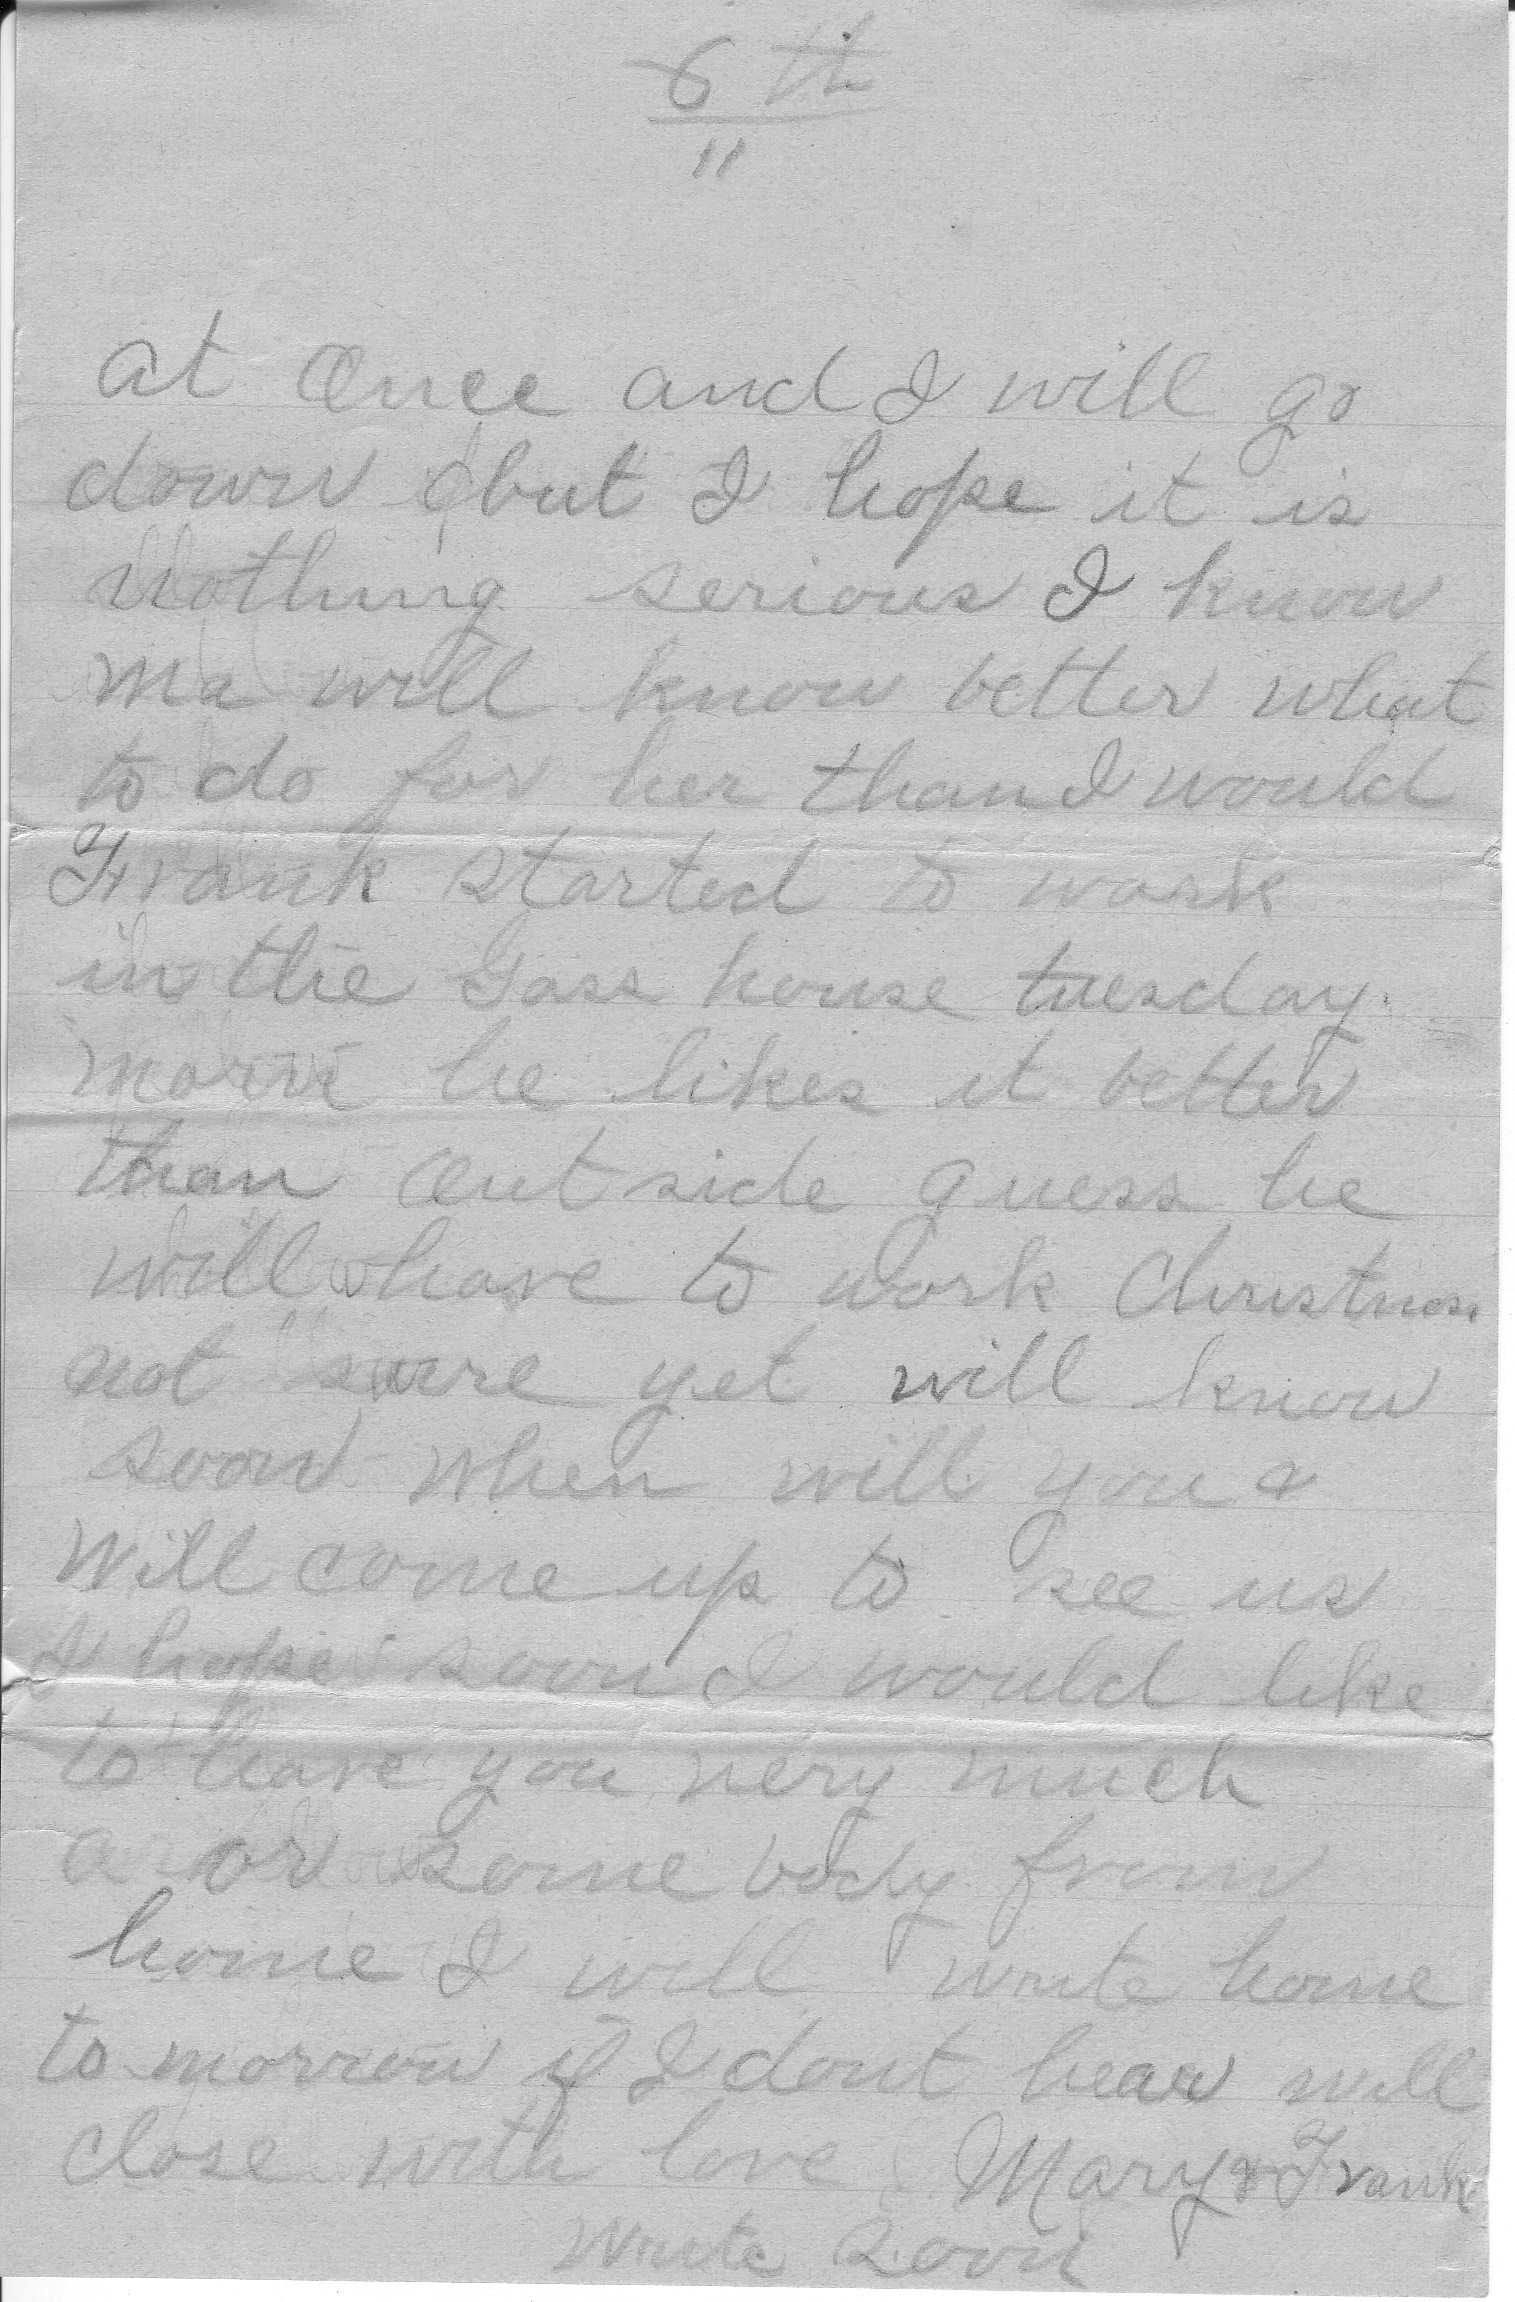 6 th
"
at once and I will go
down but I hope it is
nothing serious I know
ma will know better what
to do for her than I would
Frank started to work
in the Gass house tuesday
morn he likes it better
than out side guess he
will have to work Christmas
not sure yet will know
soon when will you &
Will come up to see us
I hope soon I would like
to have you very much
a or some body from
home I will write home
to morrow if I dont hear will
close with love Mary & Frank
write soon